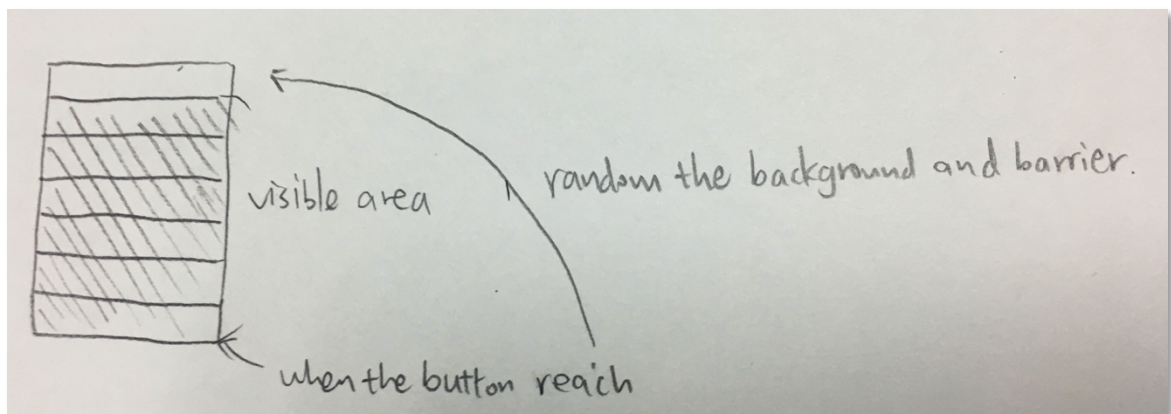 visible area
random the background and barrier.
when the button reach